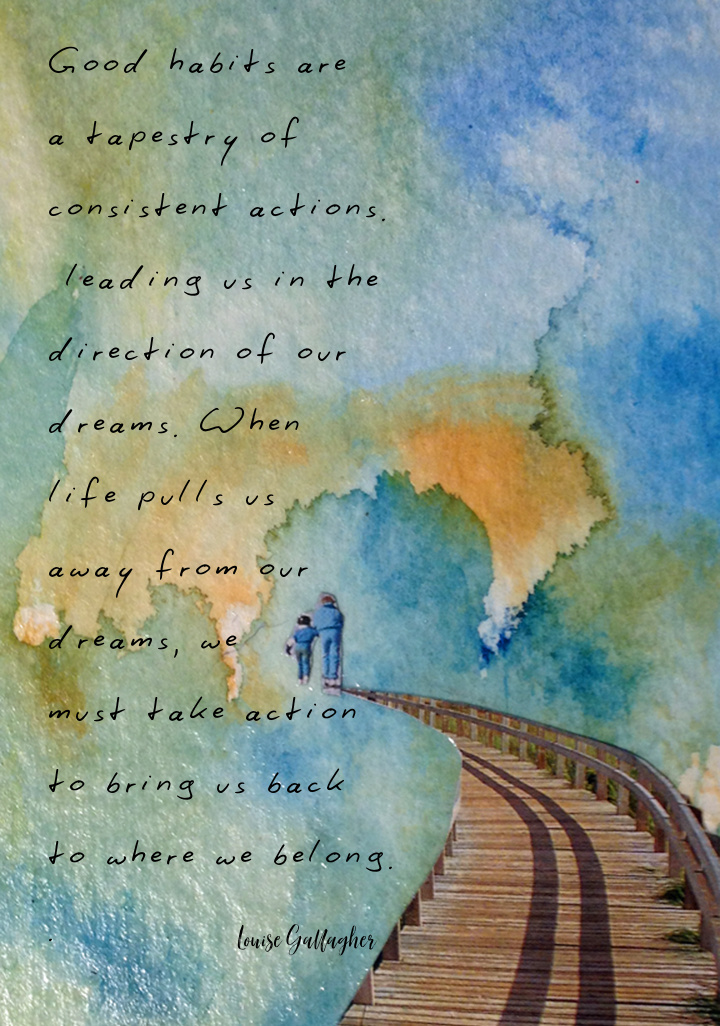 Good habits are
a tapestry of
consistent actions.
leading us in the
direction of our
dreams. When
life pulls us
away from our
dreams, we
must take action
to bring us back
to where we belong.
.
Louise Gallagher